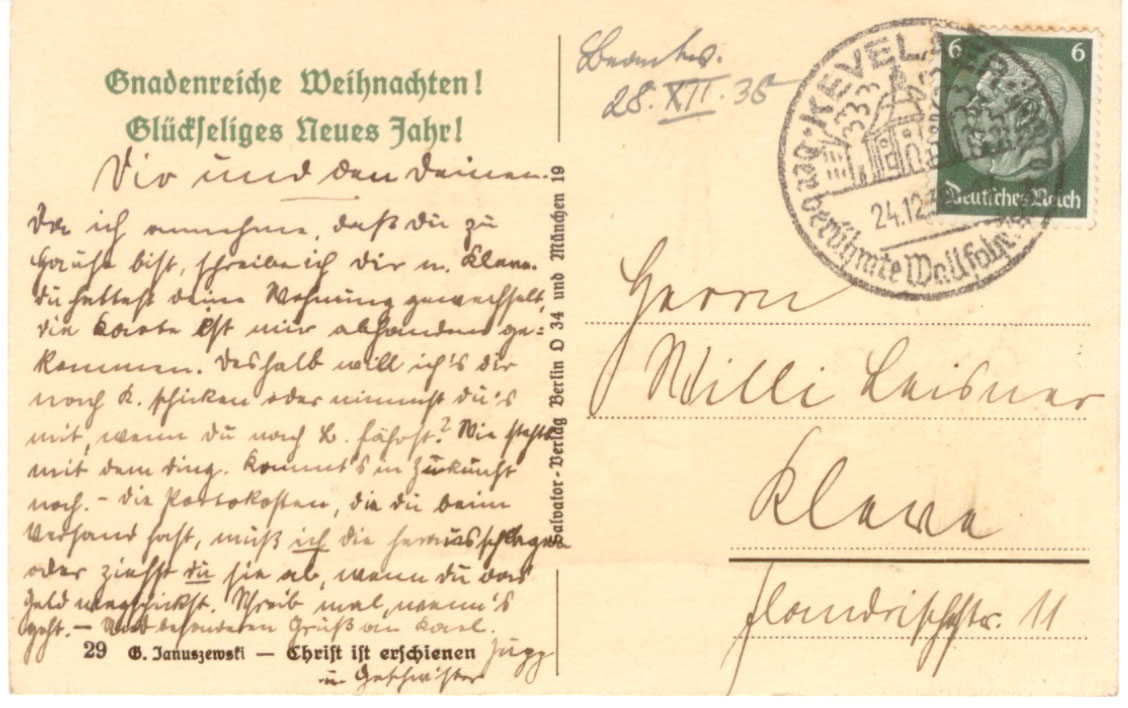 Gnadenreiche Weihnachten!
Glückseliges Neues Jahr!
Dir und den Deinen.
Da ich annehme, daß du zu
Hause bist, schreibe ich dir n. Kleve.
Du hattest deine Wohnung gewechselt,
die Karte ist mir abhanden ge=
kommen. Deshalb will ich's dir
nach K. schicken oder nimmst du's
mit, wenn du nach B. fährst? Wie steht's
mit dem Ding. Kommt's in Zukunft
noch. – Die Portokosten, die du beim
Versand hast, muß ich die herausschlagen
oder ziehst du sie ab, wenn du das
Geld wegschickst. Schreib mal, wenn's
geht. – Und besonderen Gruß an Karl.
Jupp
u. Geschwister
29 G. Januszewski — Christ ist erschienen
Salvator-Verlag Berlin O 34 und München 19
Beantw.
28. XII. 35
KEVELAER
Der
berühmte Wallfahrts
24.12
6 6
Deutsches Reich
Herrn
Willi Leisner
Kleve
Flandrischstr. 11